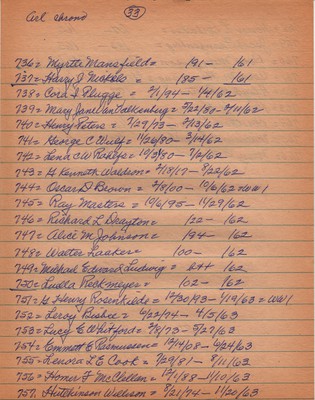 33
736 = Myrtle Mansfield = 191 - 161
737 = Harry J 185 - 161
738 = Cora I Flugge = /94 - 1/4/62
739 = Mary Jane Van Valkenberg = 2/22/80 - 2/11/62
740 = Henry Peters = 7/29/73 - 2/13/62
741 = George C Wulf = 11/26/80 - 3/14/62
742 = Lena C W = 10/3/80 - 7/2/62
743 = G Kenneth Waldson = 2/13/17 - 8/22/62
744 = Oscar D Brown = /8/00 - 10/6/62 = WW1
745 = Ray Masters = 10/6/95 - 11/29/62
746 = Richard L Drayton = 122 - 162
747 = Alice M Johnson = 184 - 162
748 = Walter Laaker = 100 - 162
749 = Michael Edward Ludwig = 162
750 = Luella Reckmeyer = 102 - 162
751 = G Henry Rosenkilde = /20/93 - 1/19/63 = WW1
752 = Leroy Bushee = 6/22/74 - 4/5/63
753 = Lucy E Whitford = /8/73 - 5/27/63
754 = Emmett E Rasmussen = 12/4/08 - 6/24/63
755 = Lenora L E Cook = 7/29/81 - 8/11/63
756 = Homer F McClellan = 12/1/88 - 1/10/63
757 = Hutchinson = 8/21/74 - 1/20/63